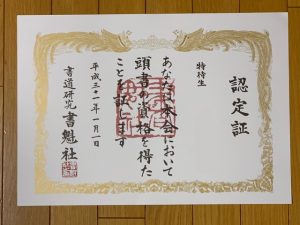 認定証
特待生
あなたは本会において
頭書の資格を得た
ことを証します
平成三十一年一月一日
書道研究 書魁社